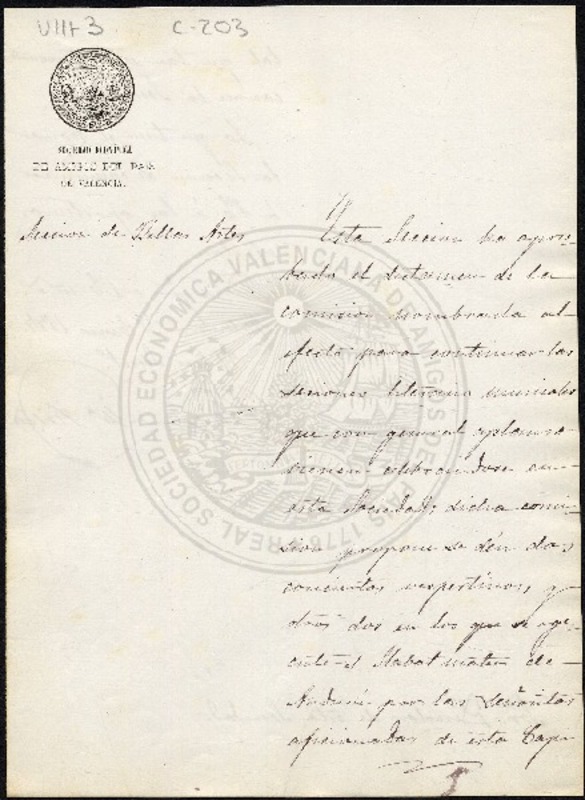 VIII-3 C-203
SOCIEDAD ECONÓMICA
DE AMIGOS DEL PAIS
DE VALENCIA.
Seccion de Bellas Artes
Esta Seccion ha apro-
bado el dictamen de la
comision nombrada al
efecto para continuar las
sesiones literario musicales
que con general aplauso
vienen celebrandose en
esta Sociedad; dicha comi-
sion propone se dén dos
conciertos vespertinos, y
otros dos en los que se eje-
cute el Stabat mater de
por las Señoritas
aficionadas de esta Capi-
REAL SOCIEDAD ECONOMICA VALENCIANA DE AMIGOS DEL PAIS 1776